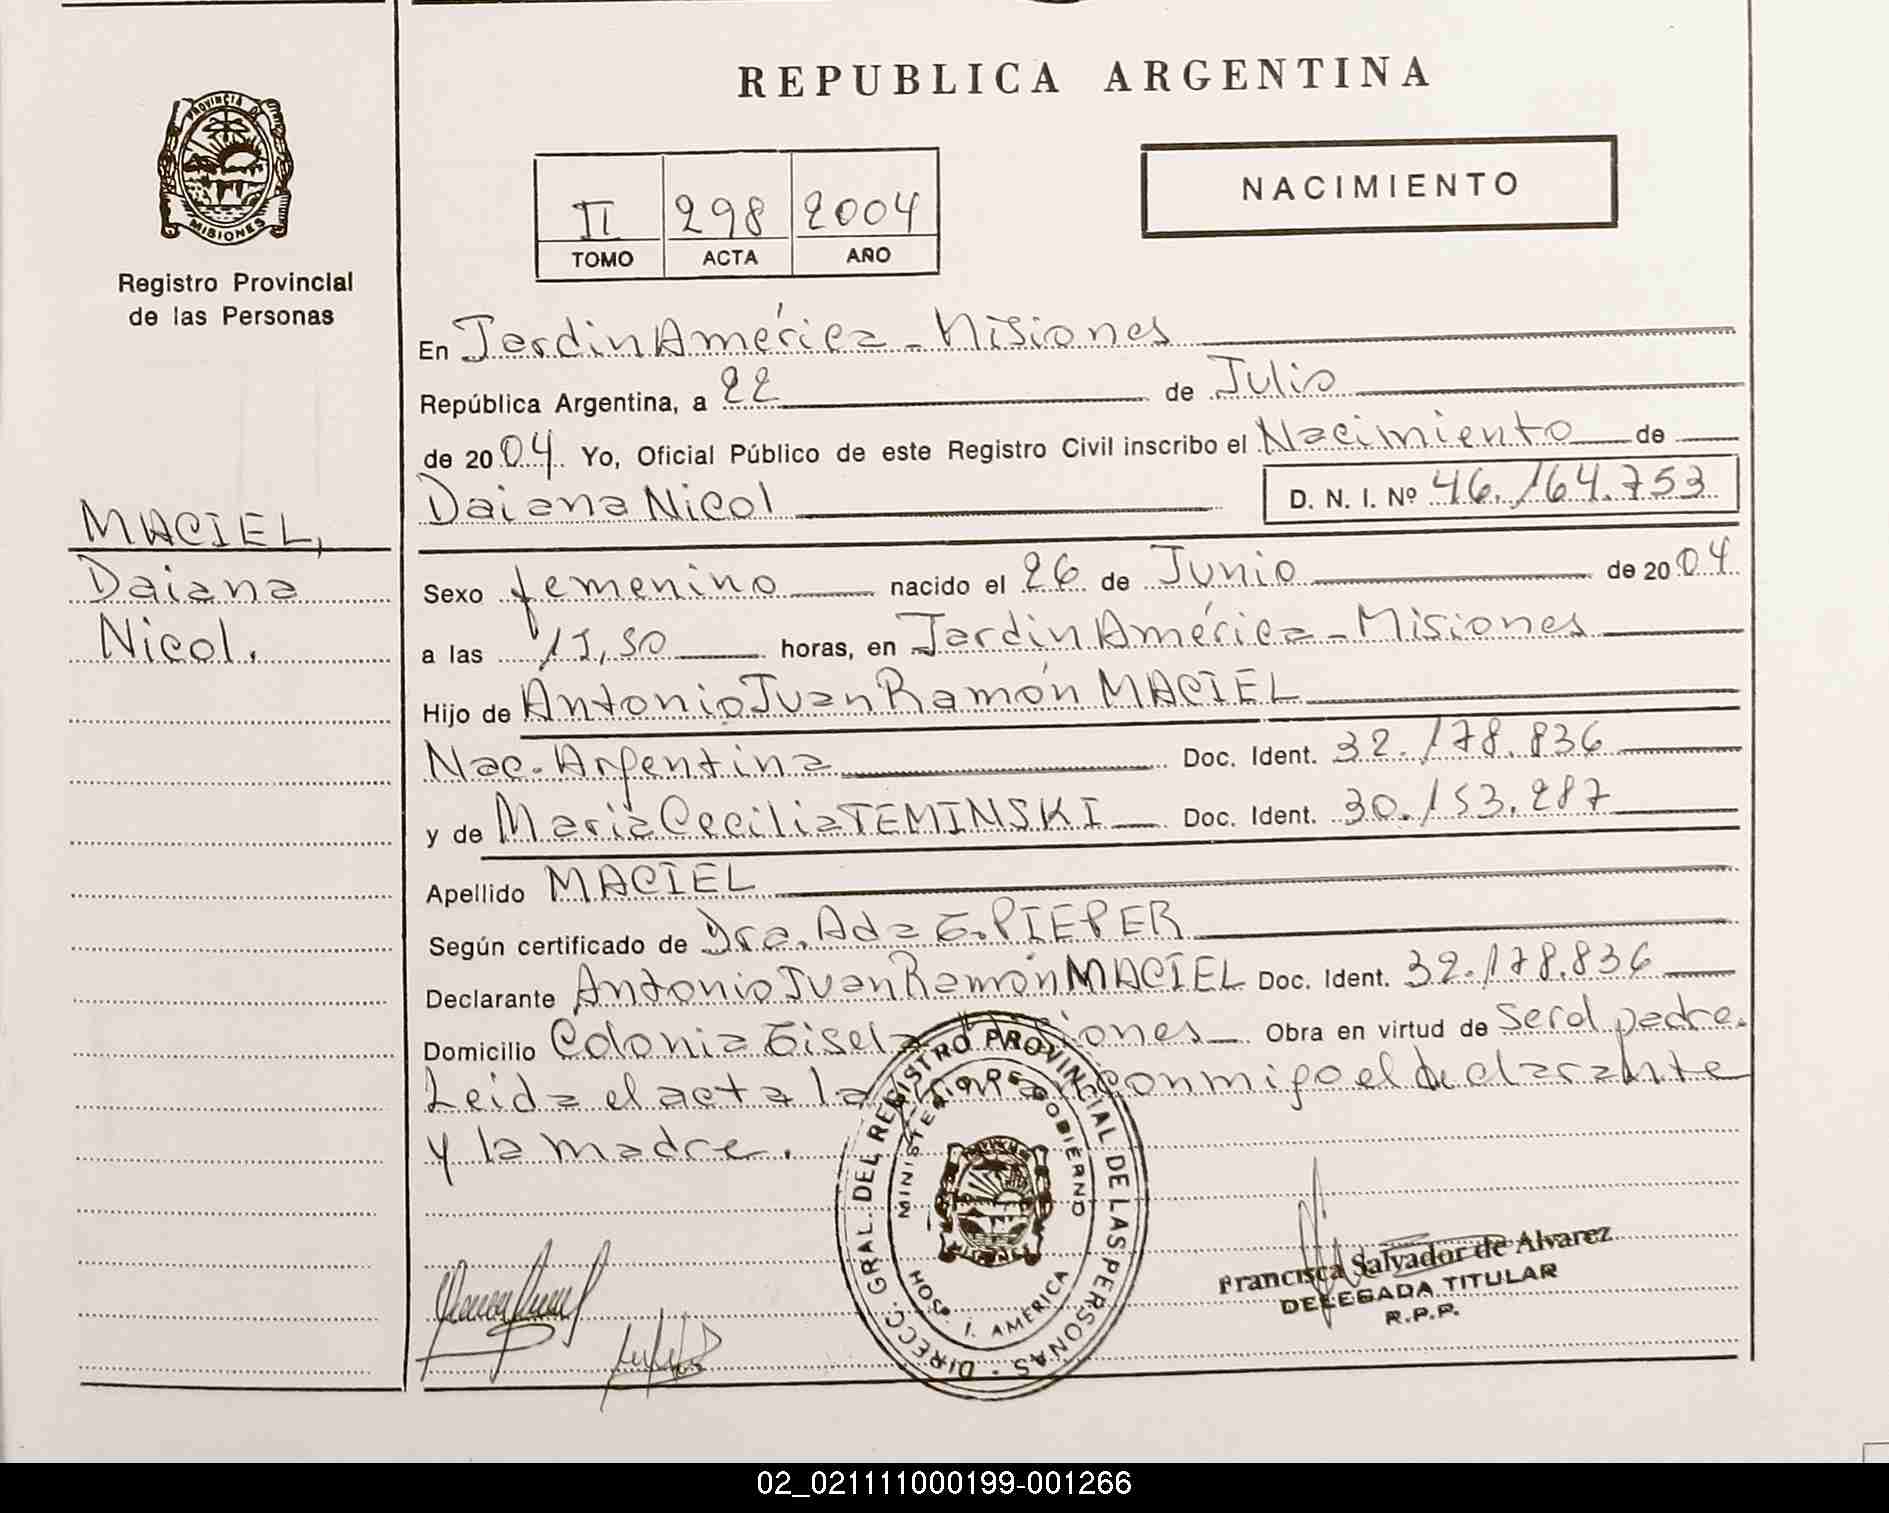 REPUBLICA ARGENTINA
PROVINCIA DE MISIONES
Registro Provincial
de las Personas
II 298 2004
TOMO ACTA AÑO
NACIMIENTO
En Jardin América - Misiones
República Argentina, a 22 de Julio
de 2004. Yo, Oficial Público de este Registro Civil inscribo el Nacimiento de
Daiana Nicol D. N. I. Nº 46.164.753
MACIEL,
Daiana
Nicol.
Sexo femenino nacido el 26 de Junio de 2004
a las horas, en Jardin América - Misiones
Hijo de Antonio Juan Ramón MACIEL
Nac. Argentina Doc. Ident. 32.178.836
y de María Cecilia TEMINSKI Doc. Ident. 30.153.287
Apellido MACIEL
Según certificado de Dra. Ada G. PIEPER
Declarante Antonio Juan Ramón MACIEL Doc. Ident. 32.178.836
Domicilio Colonia Gisela Misiones Obra en virtud de ser el padre.
Leida el acta la firman conmigo el declarante
y la madre.
DIRECC. GRAL. DEL REGISTRO PROVINCIAL DE LAS PERSONAS
MINISTERIO DE GOBIERNO
HOSP. J. AMÉRICA
Francisca Salvador de Alvarez
DELEGADA TITULAR
R.P.P.
02_021111000199-001266